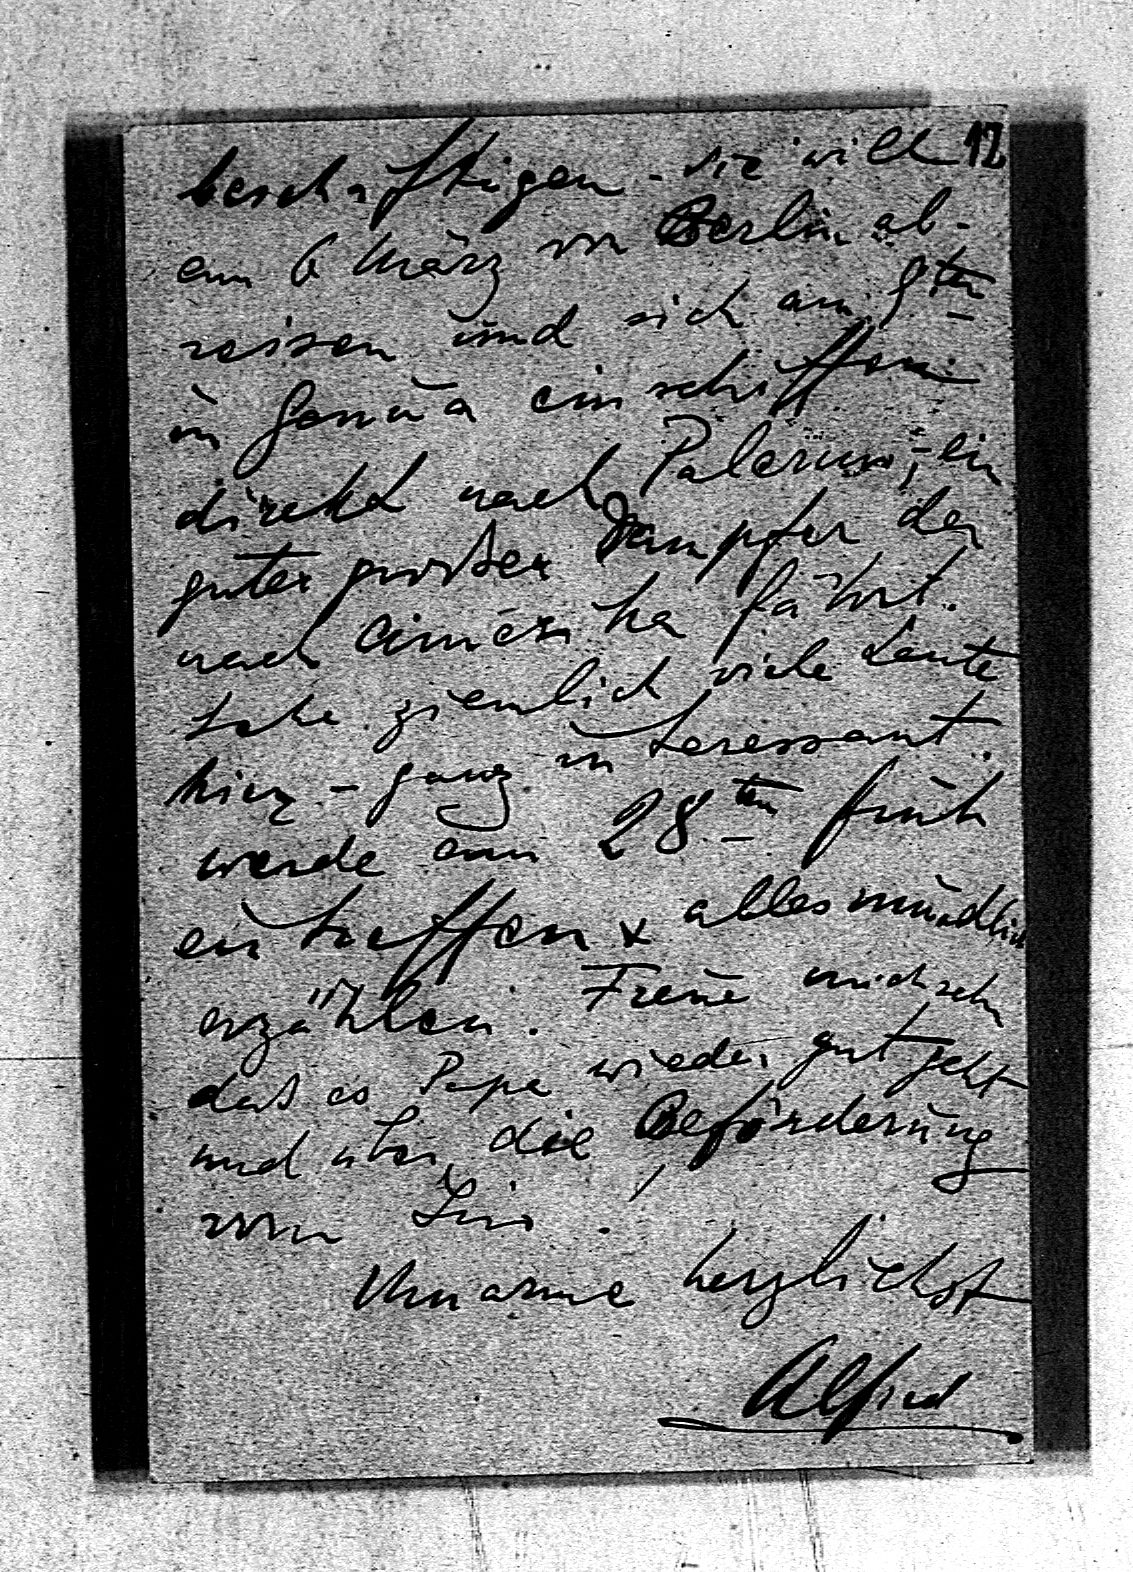 12
beschäftigen - sie will
am 6 März von Berlin ab-
reisen und sich am 9ten
in Genua einschiffen
direkt nach Palermo, ein
guter großer Dampfer der
nach Amerika fährt.
Sehe ziemlich viele Leute
hier - ganz interessant.
werde am 28ten früh
eintreffen & alles mündlich
erzählen. Freue mich sehr
daß es Papa wieder gut geht
und über die Beförderung
von
Umarme herzlichst
Alfred